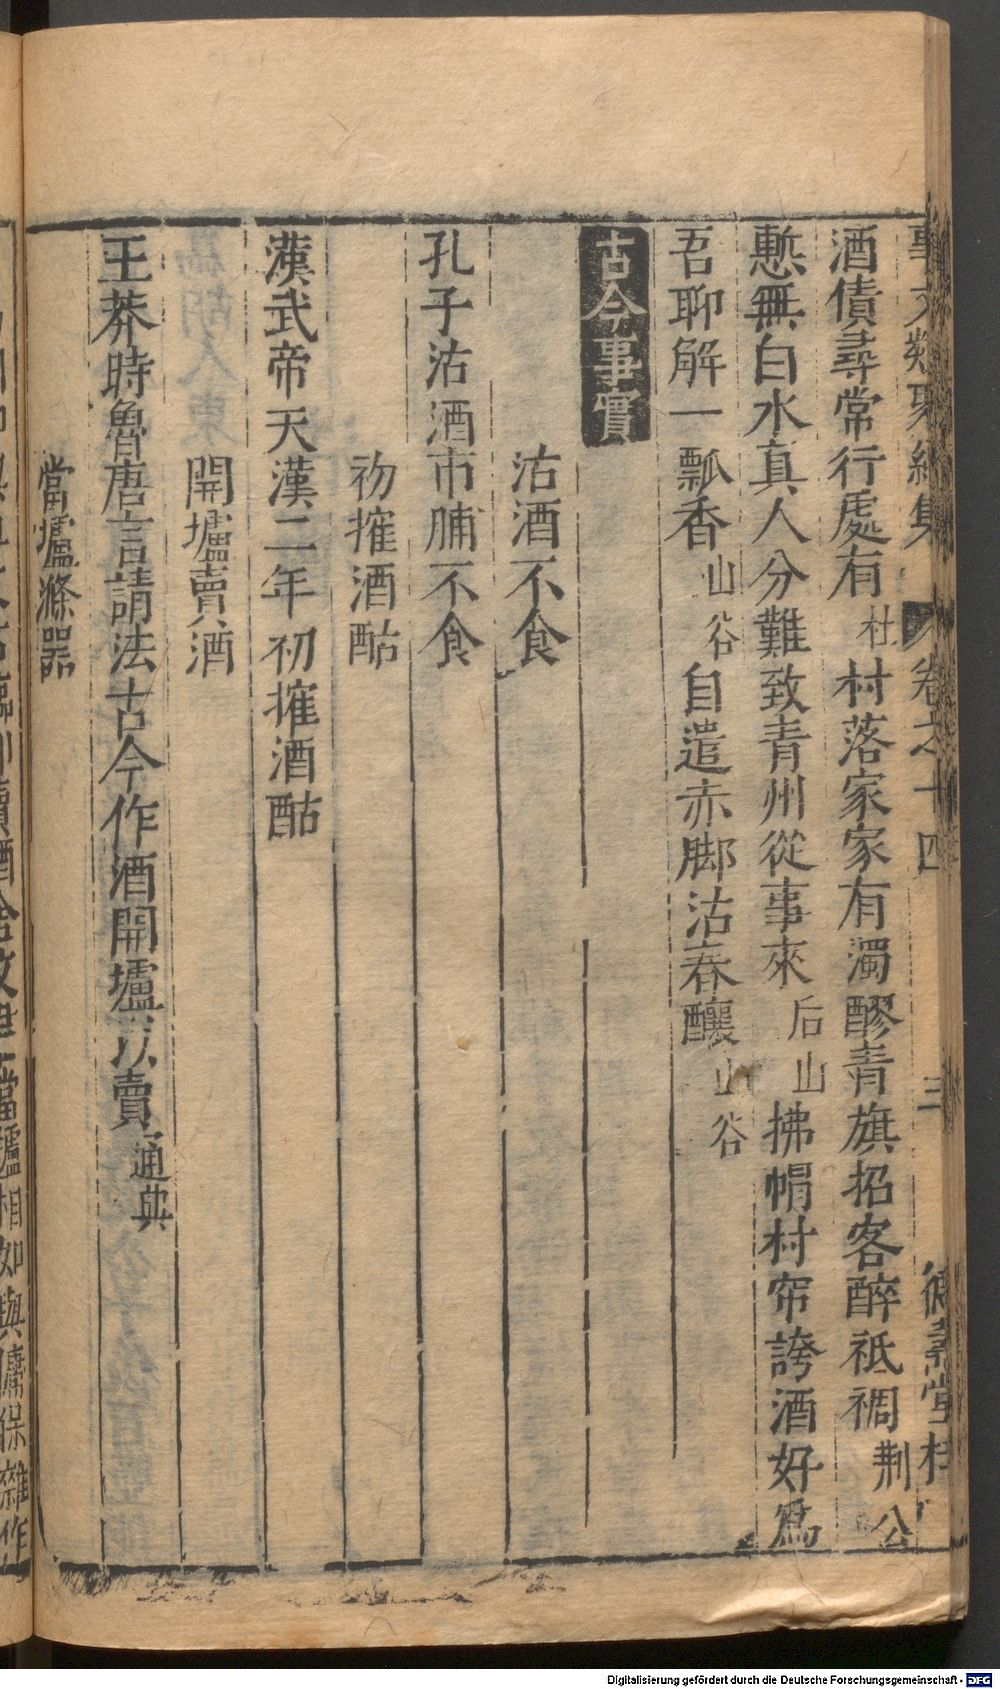 酒債尋常行處有杜村落家家有濁醪青旗招客醉祗禂荆公
慙無白水真人分難致青州從事來后山拂帽村帘誇酒好為
吾聊解一瓢香山谷自遣赤脚沽春釀山谷
古今事實
沽酒不食
孔子沽酒市脯不食
初搉酒酤
漢武帝天漢二年初搉酒酤
開壚賣酒
王莽時魯唐言請法古今作酒開壚以賣通典
當壚滌器
賣酒舍文君當壚相如與傭保雜作
事文類聚 卷之十四 三
Digitalisierung gefördert durch die Deutsche Forschungsgemeinschaft - DFG